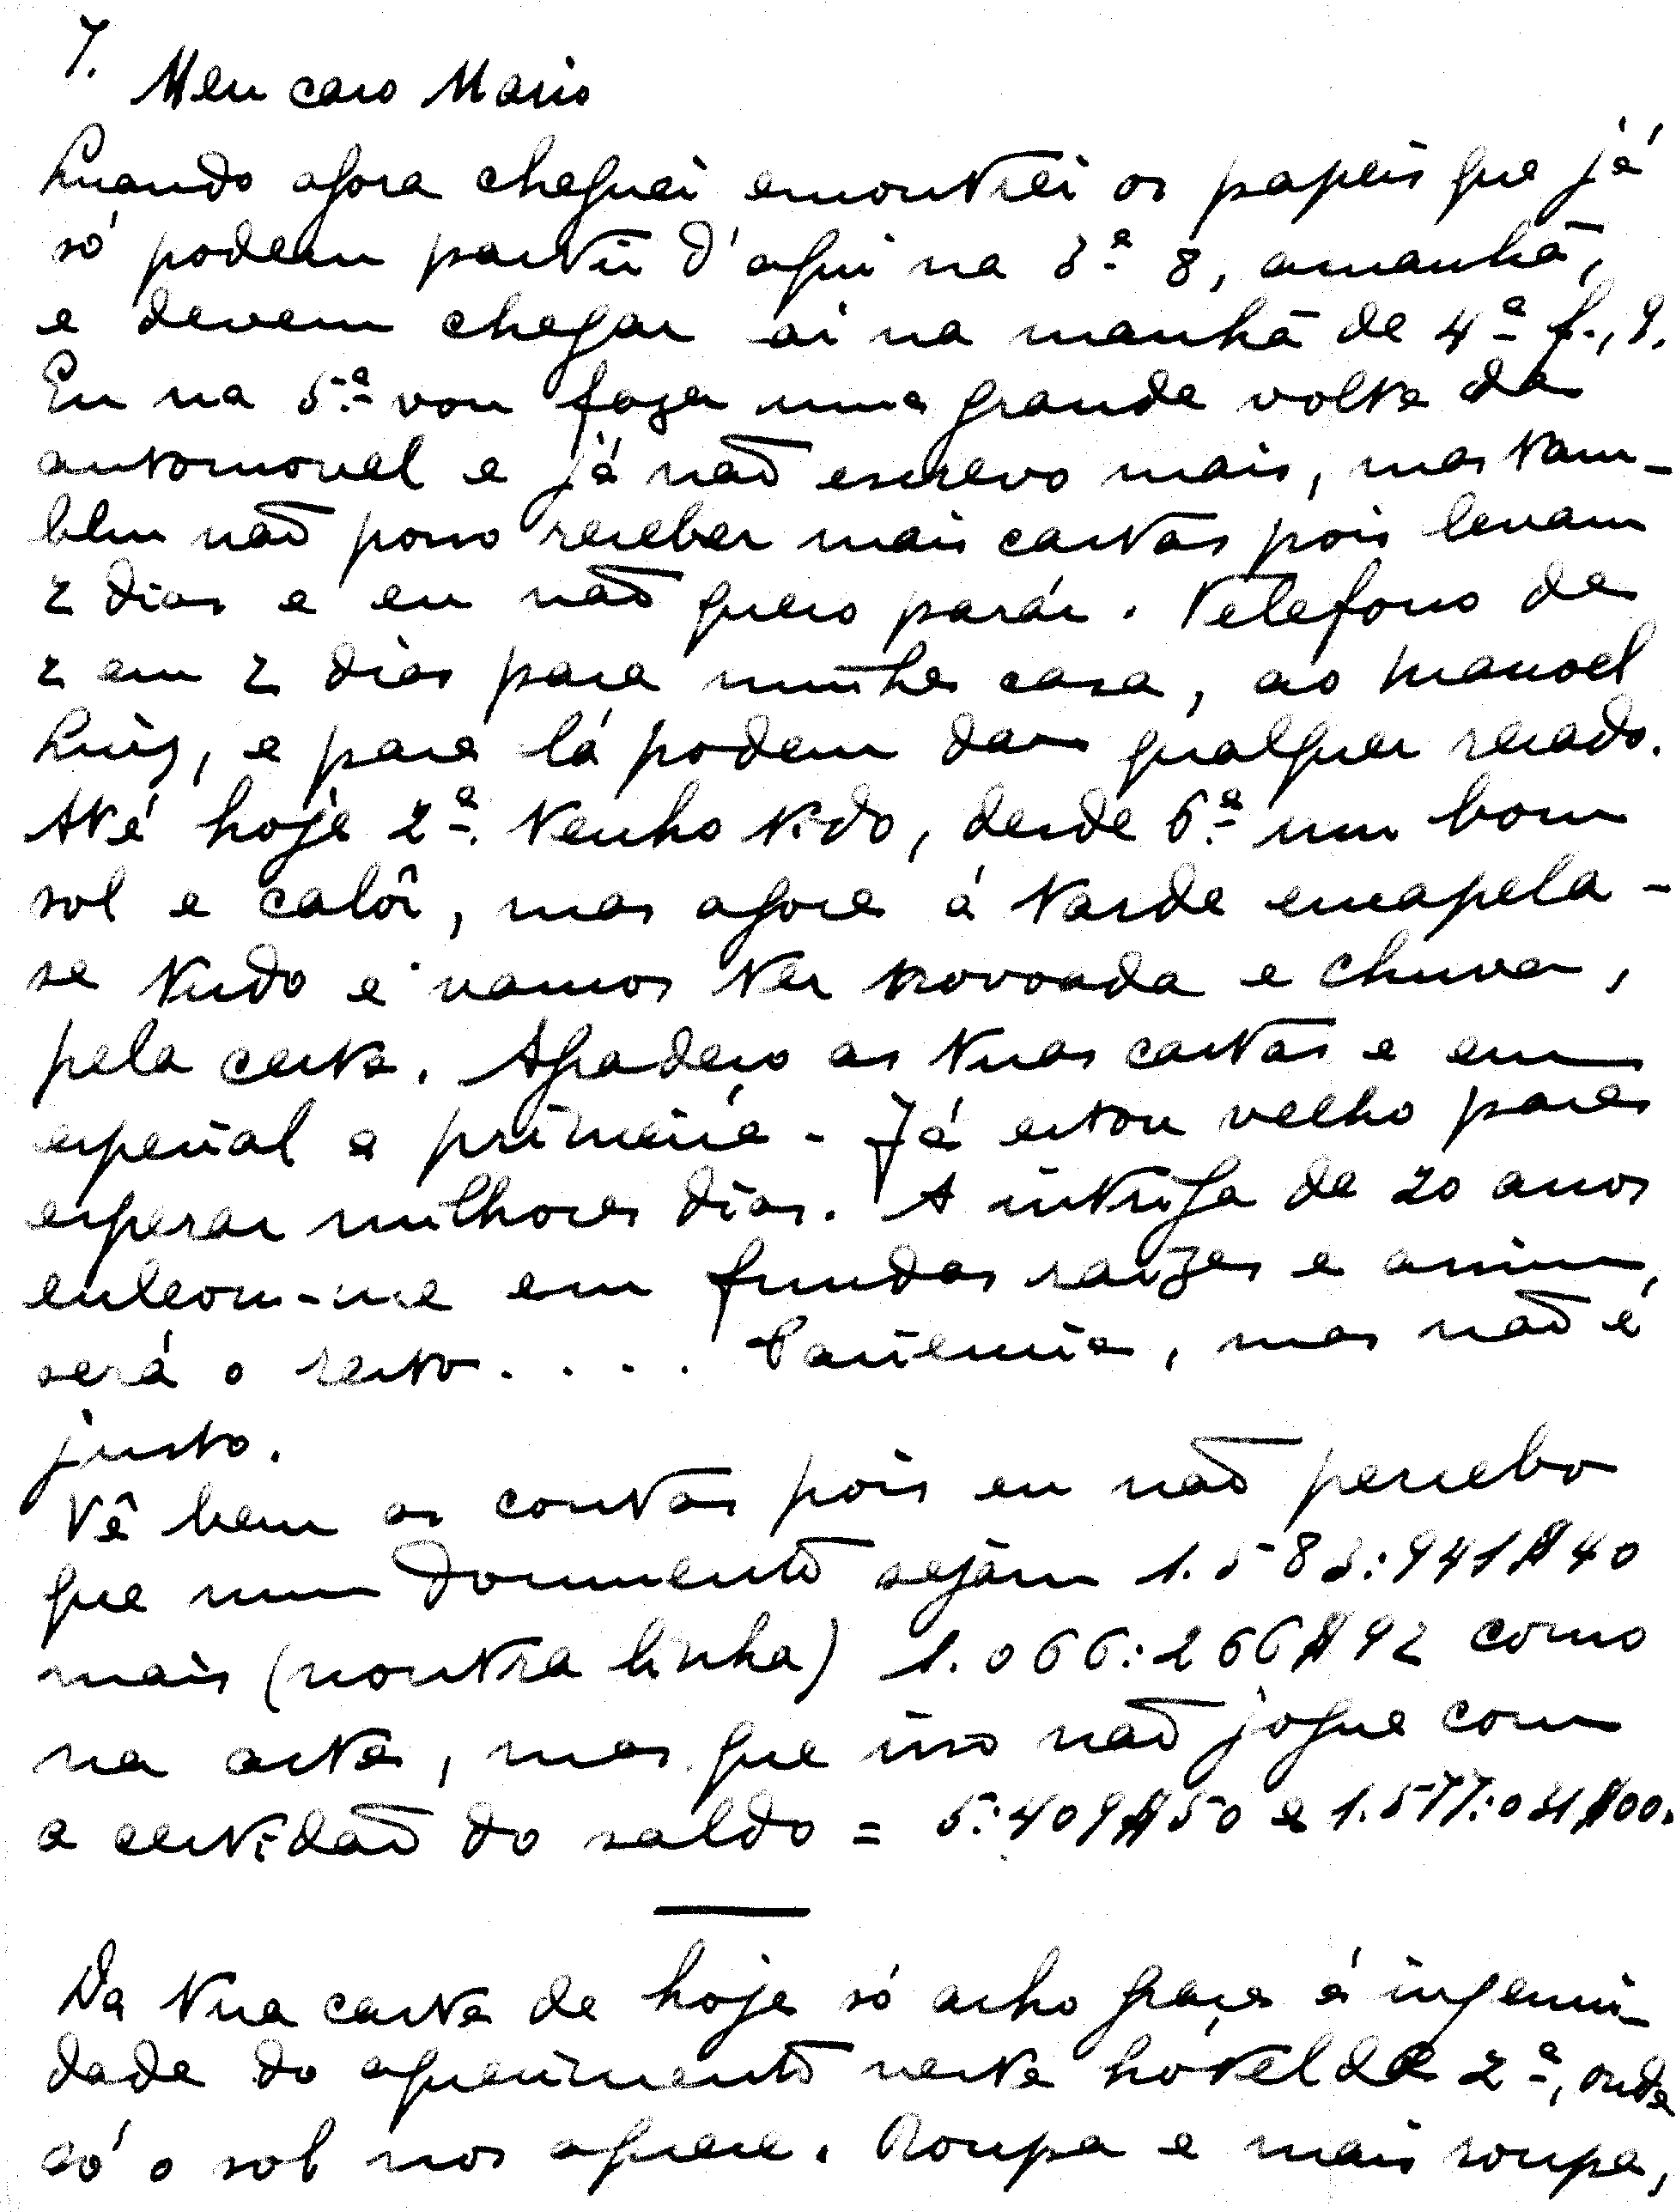 7.
Meu caro Mario
Quando agora cheguei encontrei os papeis que já
só podem partir d'aqui na 3.ª 8, amanhã,
e devem chegar ai na manhã de 4.ª f., 9.
Eu na 5.ª vou fazer uma grande volta de
automovel e já não escrevo mais, mas tam-
bem não posso receber mais cartas pois levam
2 dias e eu não quero parár. Telefono de
2 em 2 dias para minha casa, ao Manoel
Luiz, e para lá podem dar qualquer recado.
Até hoje 2.ª tenho tido, desde 6.ª um bom
sol e calôr, mas agora á tarde encapela-
se tudo e vamos ter trovoada e chuva,
pela certa. Agradeço as tuas cartas e em
especial a primeira - Já estou velho para
esperar milhores dias. A intriga de 20 anos
enleou-me em fundas raizes e assim,
será o resto.... Paciencia, mas não é
justo.
Vê bem as contas pois eu não percebo
que num documento sejam 1.583:941$40
mais (noutra linha) 1.066:266$92 como
na acta, mas que isso não jogue com
a certidão do saldo = 5:409$50 e 1.577:031$00.
Da tua carta de hoje só acho graça á ingenui-
dade do aquecimento neste hótel de 2.ª, onde
só o sol nos aquece. Roupa e mais roupa,